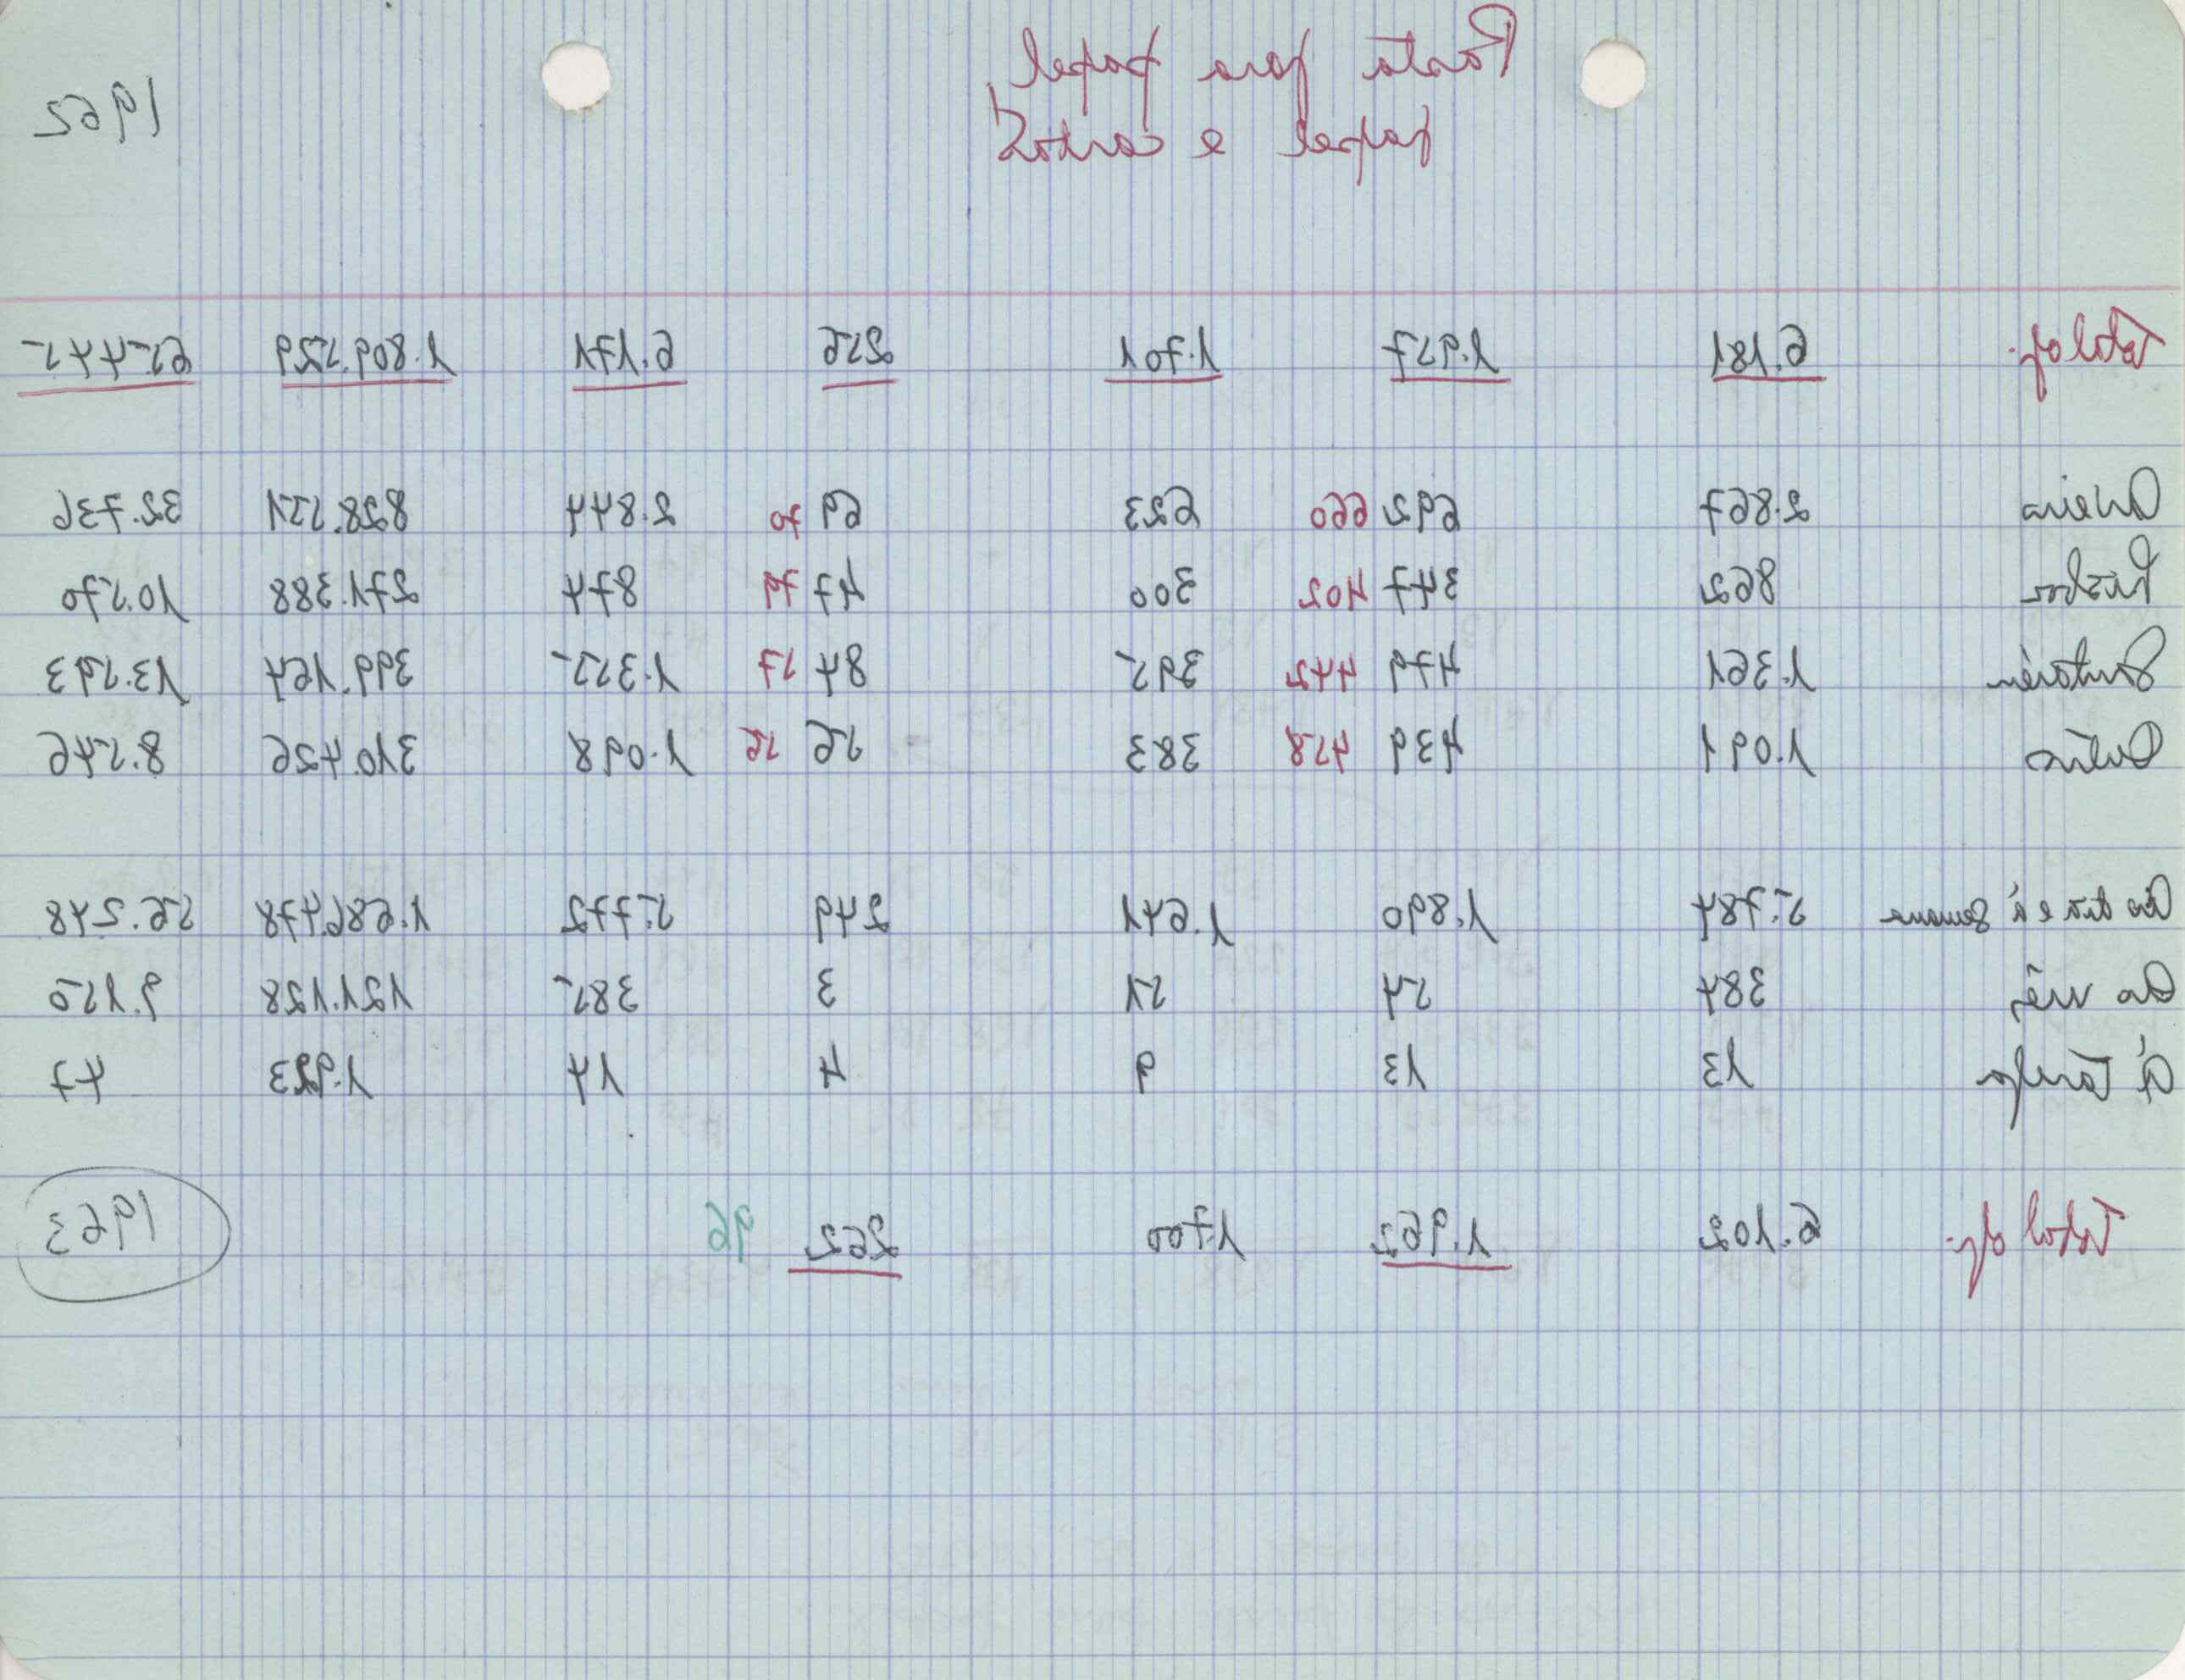 Pasta para papel, 1962
papel e cartão
Total of. 6.181 1.957 1.701 256 6.171 1.809.529 65.445
Aveiro 2.867 692 660 623 69 70 2.844 828.551 32.736
Lisboa 862 347 402 300 47 79 874 271.388 10.570
Santarém 1.361 479 442 395 84 57 1.355 399.164 13.593
Outros 1.091 439 458 383 56 56 1.098 310.426 8.546
Ao dia e à semana 5.784 1.890 1.641 249 5.772 1.686.478 56.248
Ao mês 384 54 51 3 385 121.128 9.150
À tarefa 13 13 9 4 14 1.923 47
Total of. 6.102 1.962 1700 262 96 1963